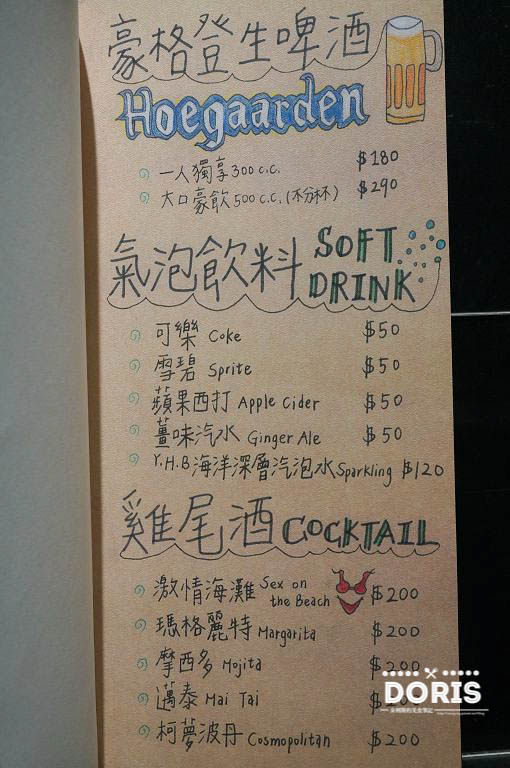 豪格登生啤酒
Hoegaarden
一人獨享 300 c.c. $180
大口豪飲 500 c.c. (不分杯) $290
氣泡飲料 SOFT DRINK
可樂 Coke $50
雪碧 Sprite $50
蘋果西打 Apple Cider $50
薑味汽水 Ginger Ale $50
Y.H.B海洋深層汽泡水 Sparkling $120
雞尾酒 COCKTAIL
激情海灘 Sex on the Beach $200
瑪格麗特 Margarita $200
摩西多 Mojita $200
邁泰 Mai Tai
柯夢波丹 Cosmopolitan $200
DORIS